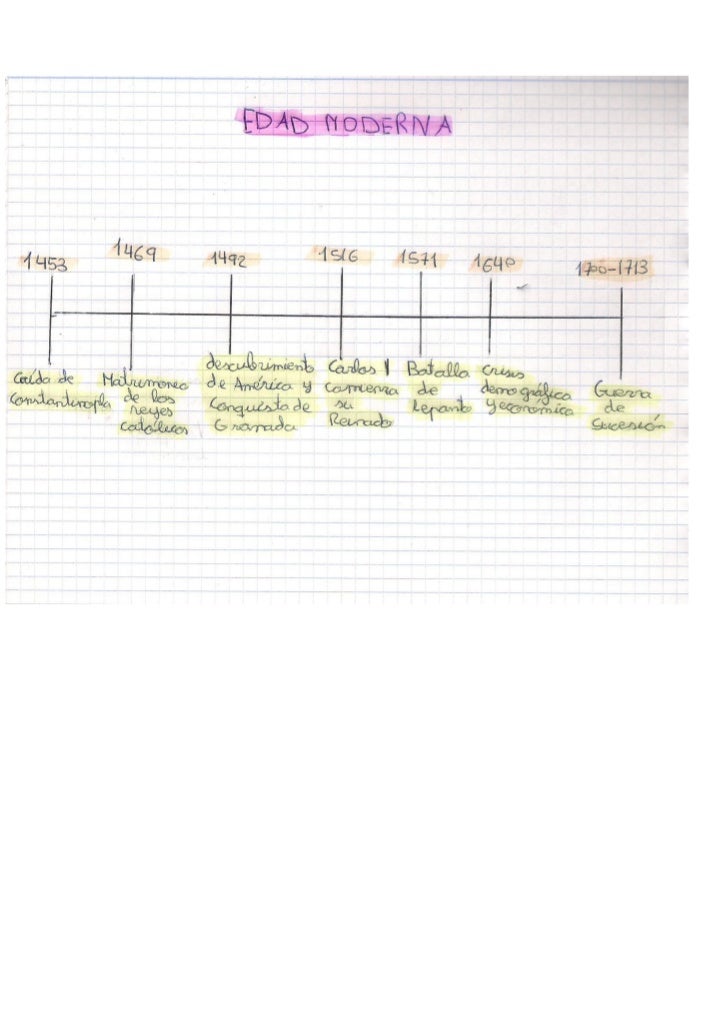 EDAD MODERNA
1453
1469
1492
1516
1571
1640
1700-1713
Caída de
Constantinopla
Matrimonio
de los
reyes
católicos
descubrimiento
de América y
Conquista de
Granada
Carlos I
comienza
su
Reinado
Batalla
de
Lepanto
crisis
demográfica
y económica
Guerra
de
sucesión